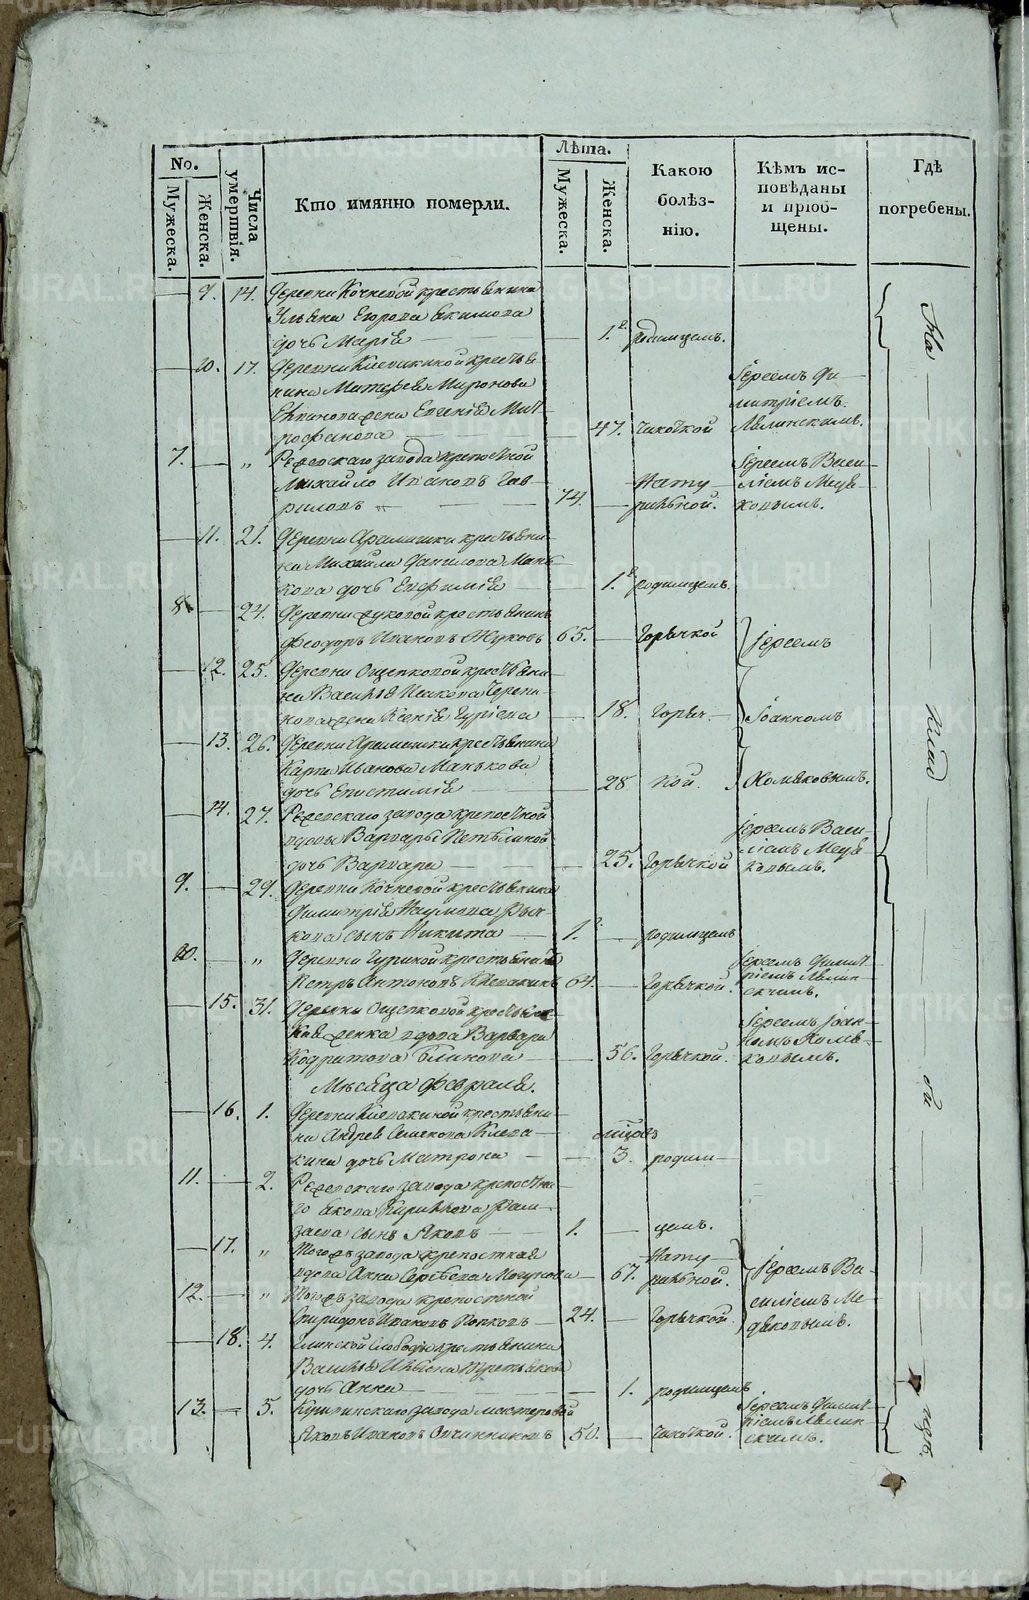 No.
Мужеска.
Женска.
Числа умертвія.
Кто имянно померли.
Лѣта.
Мужеска.
Женска.
Какою болѣз-
нію.
Кѣмъ ис-
повѣданы
и пріоб-
щены.
Гдѣ
погребены.
9. 14. Деревни Кочневой крестьянина
Егорова Екимова
дочь Марія 1. родимцемъ.
10. 17. Деревни Клевакиной крестья
нина Матвея Миронова
жена Евгенія Мит
рофанова 47. чахоткой
Іереемъ Ди
митріемъ
7. „ Режевскаго завода крепостной
Михайло Ивановъ Гав
риловъ 74. Нату
ральной.
Іереемъ Васи
ліемъ Медв
ковымъ.
11. 21. Деревни Арамашки крестьяни
на Михайла Данилова Мань
кова дочь Евфимія 1. родимцемъ.
8 24. Деревни Жуковой крестьянинъ
Феодоръ Ивановъ Жуковъ 65. Горячкой
Іереемъ
12. 25. Деревни Ощепковой крестьяни
на Василья Исакова Черепа
нова жена Ксенія Гуріева 18. Горяч
Іоанномъ
13. 26. Деревни Арамашки крестьянина
Карпа Иванова Манькова
дочь Епистимія 28 кой.
Хомяковымъ.
14. 27. Режевскаго завода крепостной
вдовы Варвары Петелиной
дочь Варвара 25. Горячкой
Іереемъ Васи
ліемъ Медв
ковымъ.
9. 29. Деревни Кочневой крестьянина
Димитрія Наумова Рыч
кова сынъ Никита 1. родимцемъ
10. „ Деревни Гуриной крестьянинъ
Петръ Антоновъ Клевакинъ 64. Горячкой.
Іереемъ Димит
ріемъ
15. 31. Деревни Ощепковой крестьян
ская женка вдова Варвара
Кодратова Бликова 56. Горячкой.
Іереемъ Іоан
номъ Хомя
ковымъ.
Мѣсяца Февраля.
16. 1. Деревни Клевакиной крестьяни
на Андрея Семенова Клева
кина дочь Матрона 3. родим
11. 2. Режевскаго завода крепостна
го Якова Кирилова
сынъ Яковъ 1. цемъ.
17. „ Тогожъ завода крепостная
вдова Анна Сергѣева 67. Нату
ральной.
Іереемъ Ва
силіемъ Ме
двковымъ.
12. „ Тогожъ завода крепостной
Спиридонъ Ивановъ Поповъ 24. Горячкой
18. 4. Глинской Слободы крестьянина
Василья
дочь Анна 1. родимцемъ
13. 5. Кушвинскаго завода мастеровой
Яковъ Ивановъ Овчинниковъ 50. Чахоткой.
Іереемъ Димит
ріемъ
На клад би щѣ.
METRIKI.GASO-URAL.RU